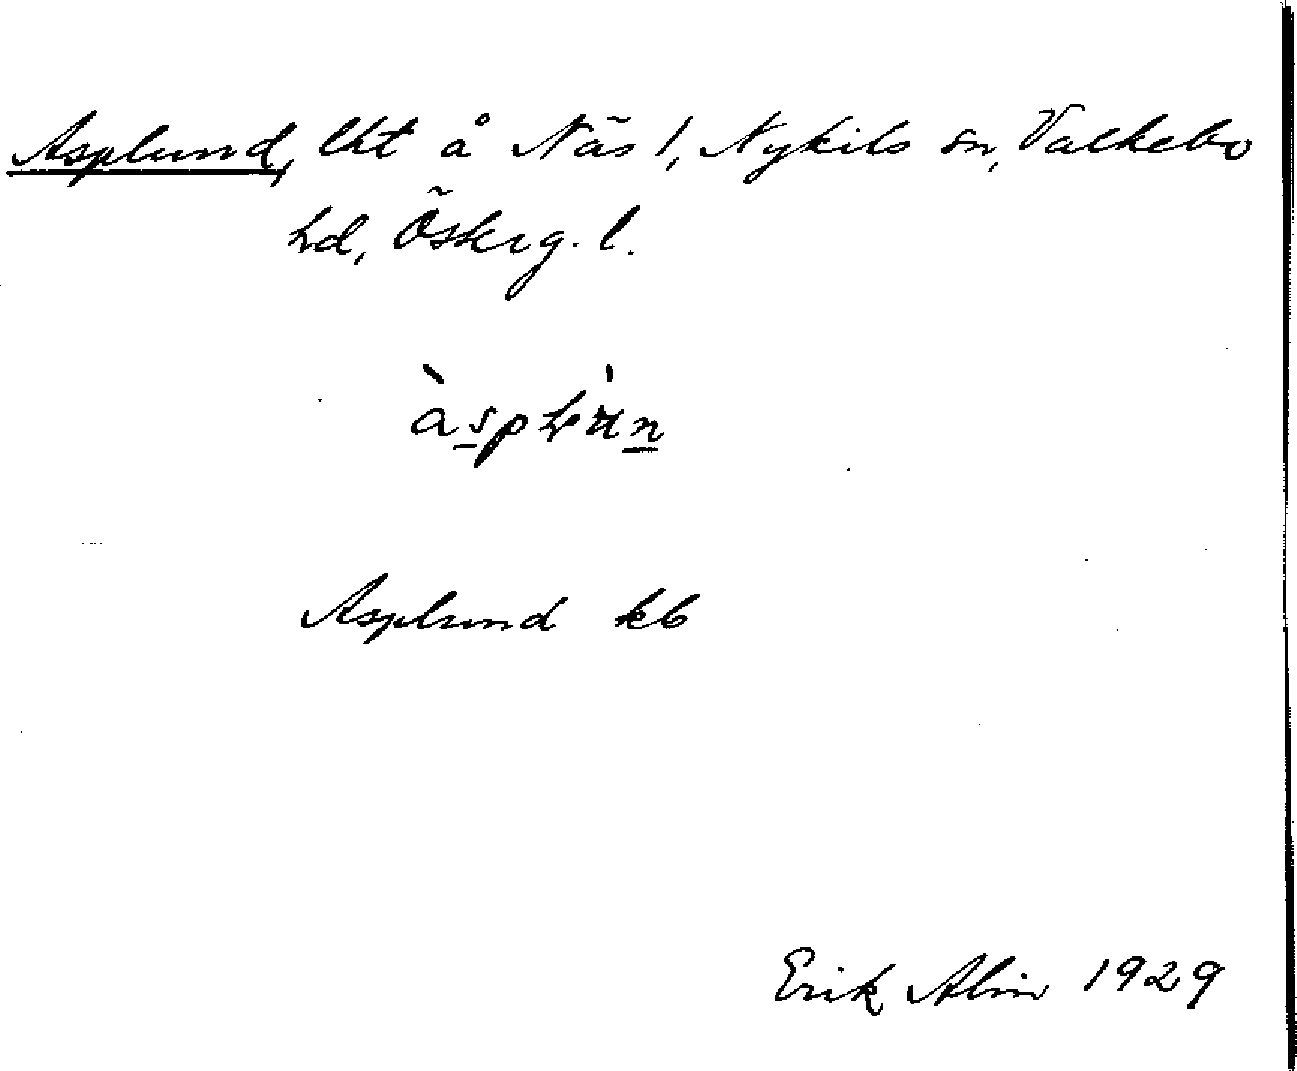 Asplund, lht å Näs 1, Nykils sn, Valkebo
hd, Österg. l.
Asplund kb
Erik Alin 1929